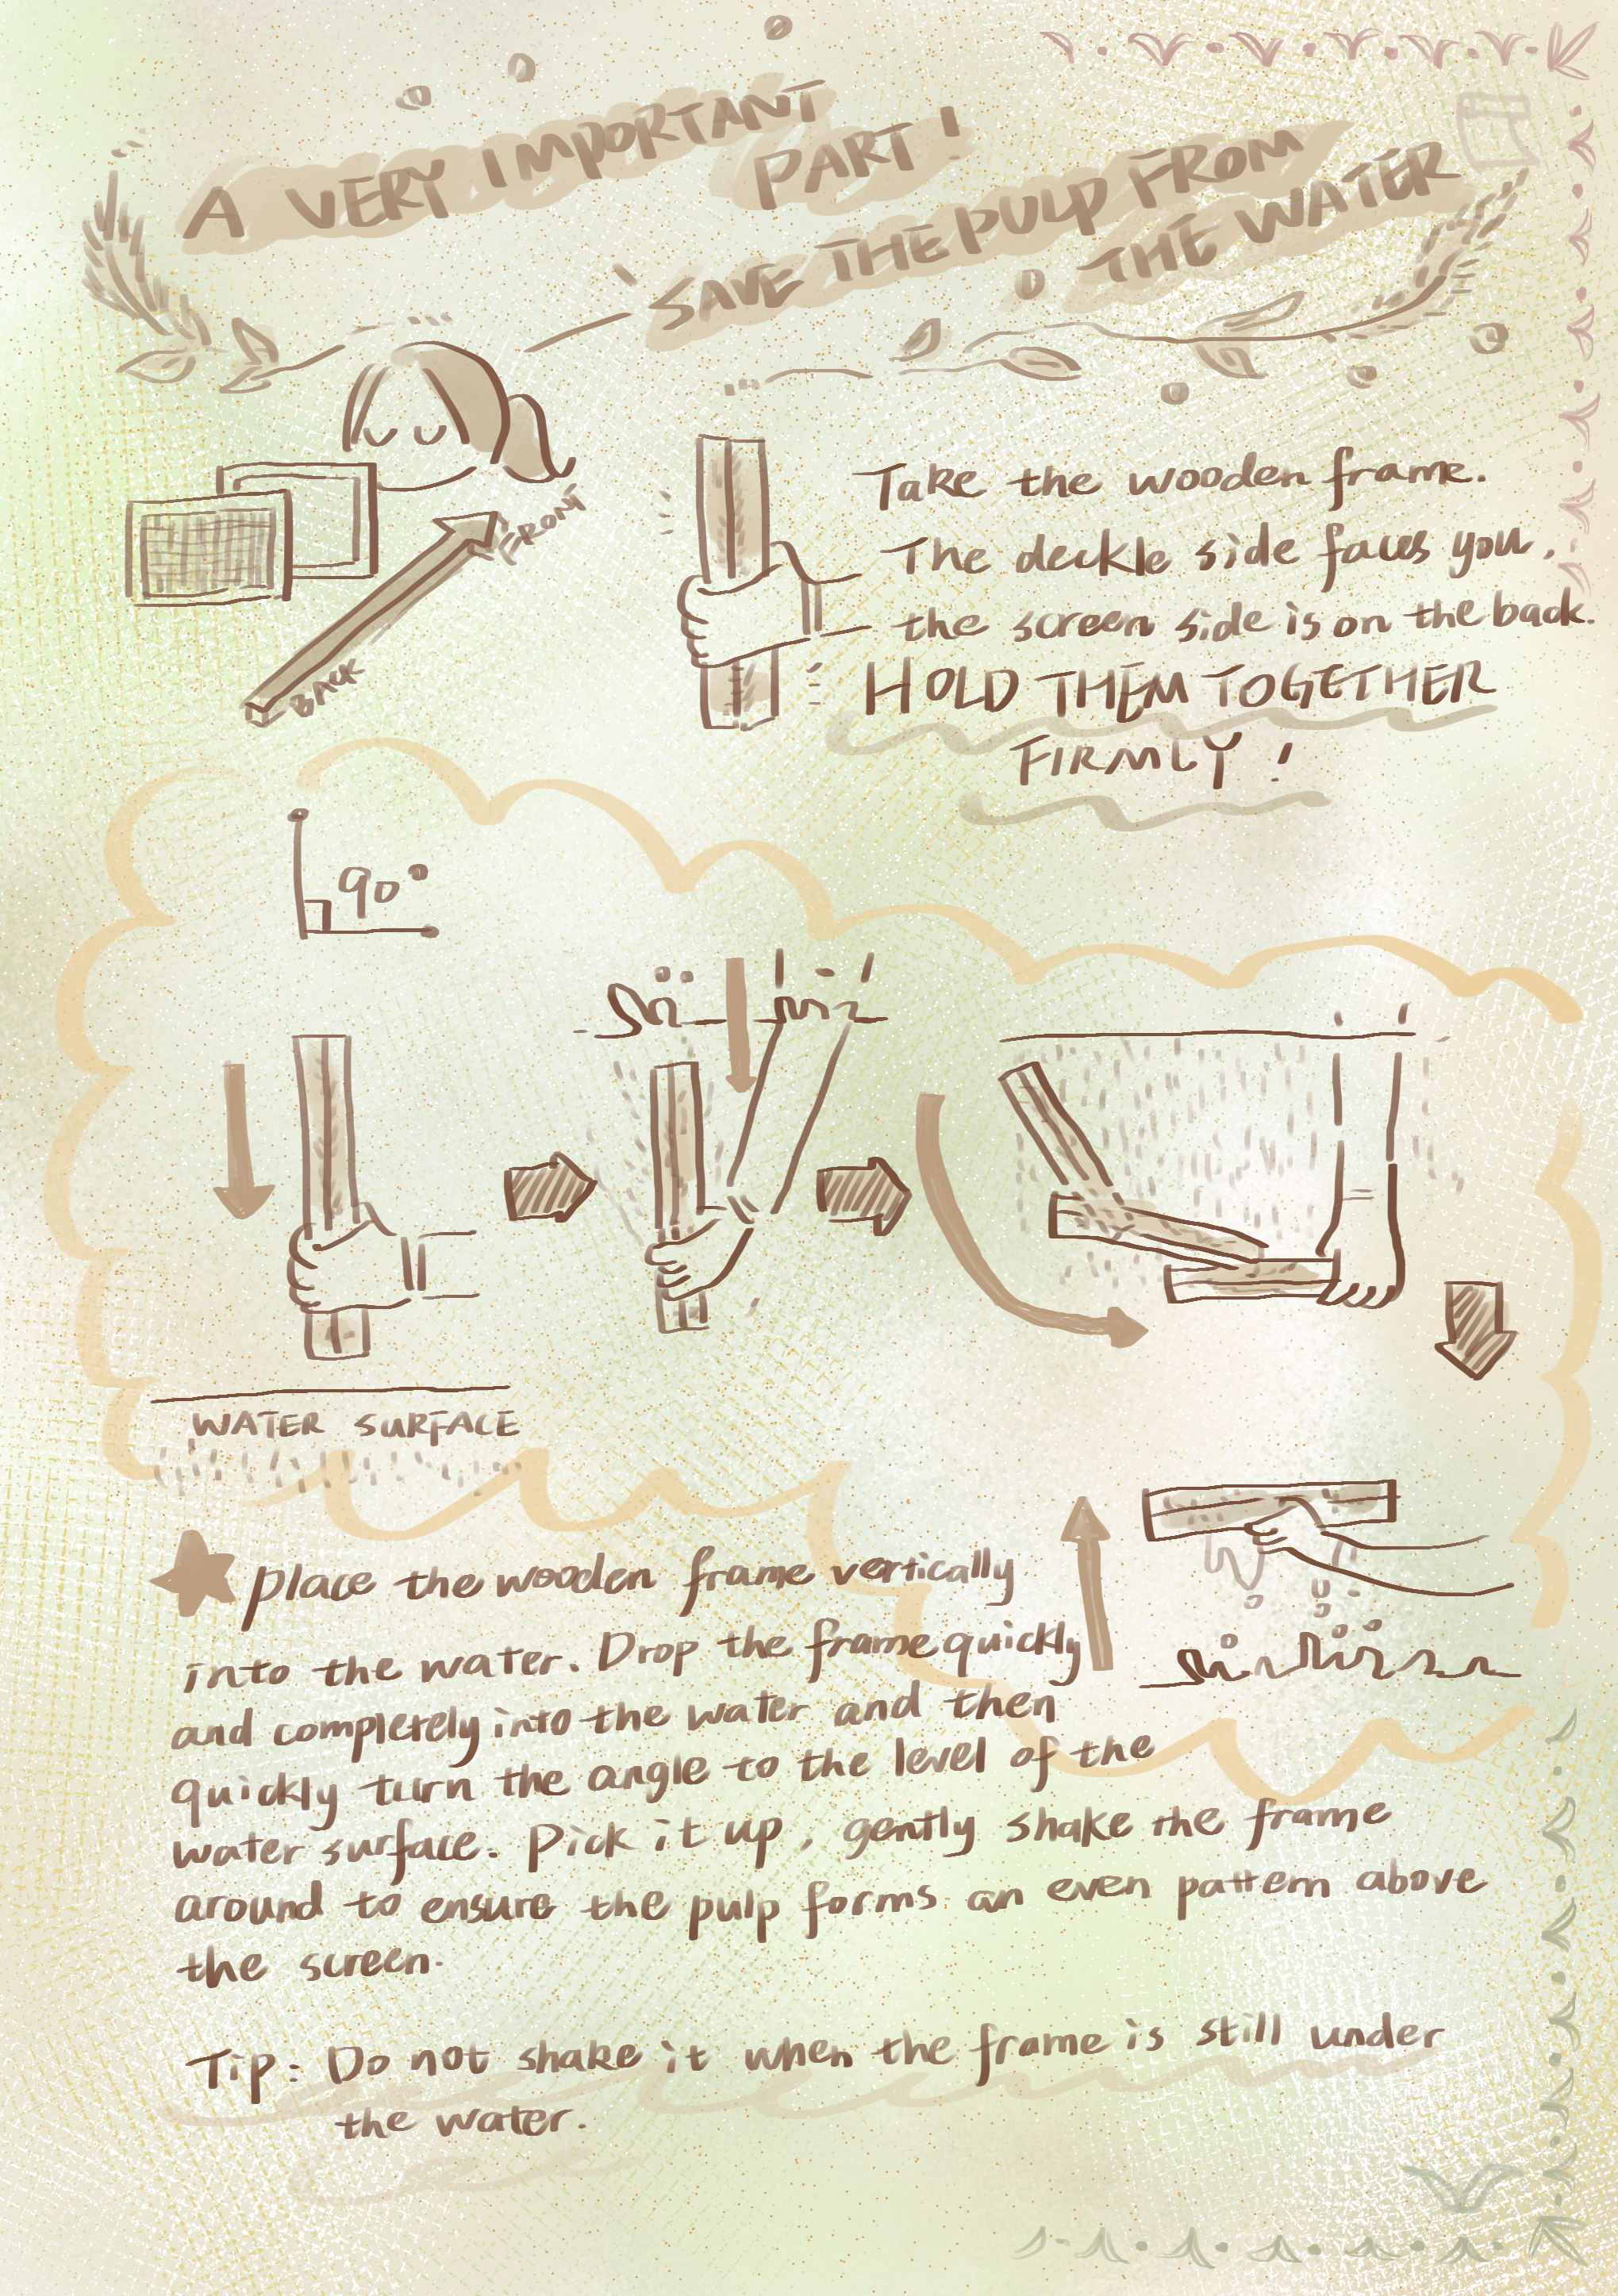 A VERY IMPORTANT
PART!
SAVE THE PULP FROM
THE WATER
FRONT
BACK
Take the wooden frame.
The deckle side faces you,
the screen side is on the back.
HOLD THEM TOGETHER
FIRMLY!
90°
WATER SURFACE
place the wooden frame vertically
into the water. Drop the frame quickly
and completely into the water and then
quickly turn the angle to the level of the
water surface. Pick it up, gently shake the frame
around to ensure the pulp forms an even pattern above
the screen.
Tip: Do not shake it when the frame is still under
the water.